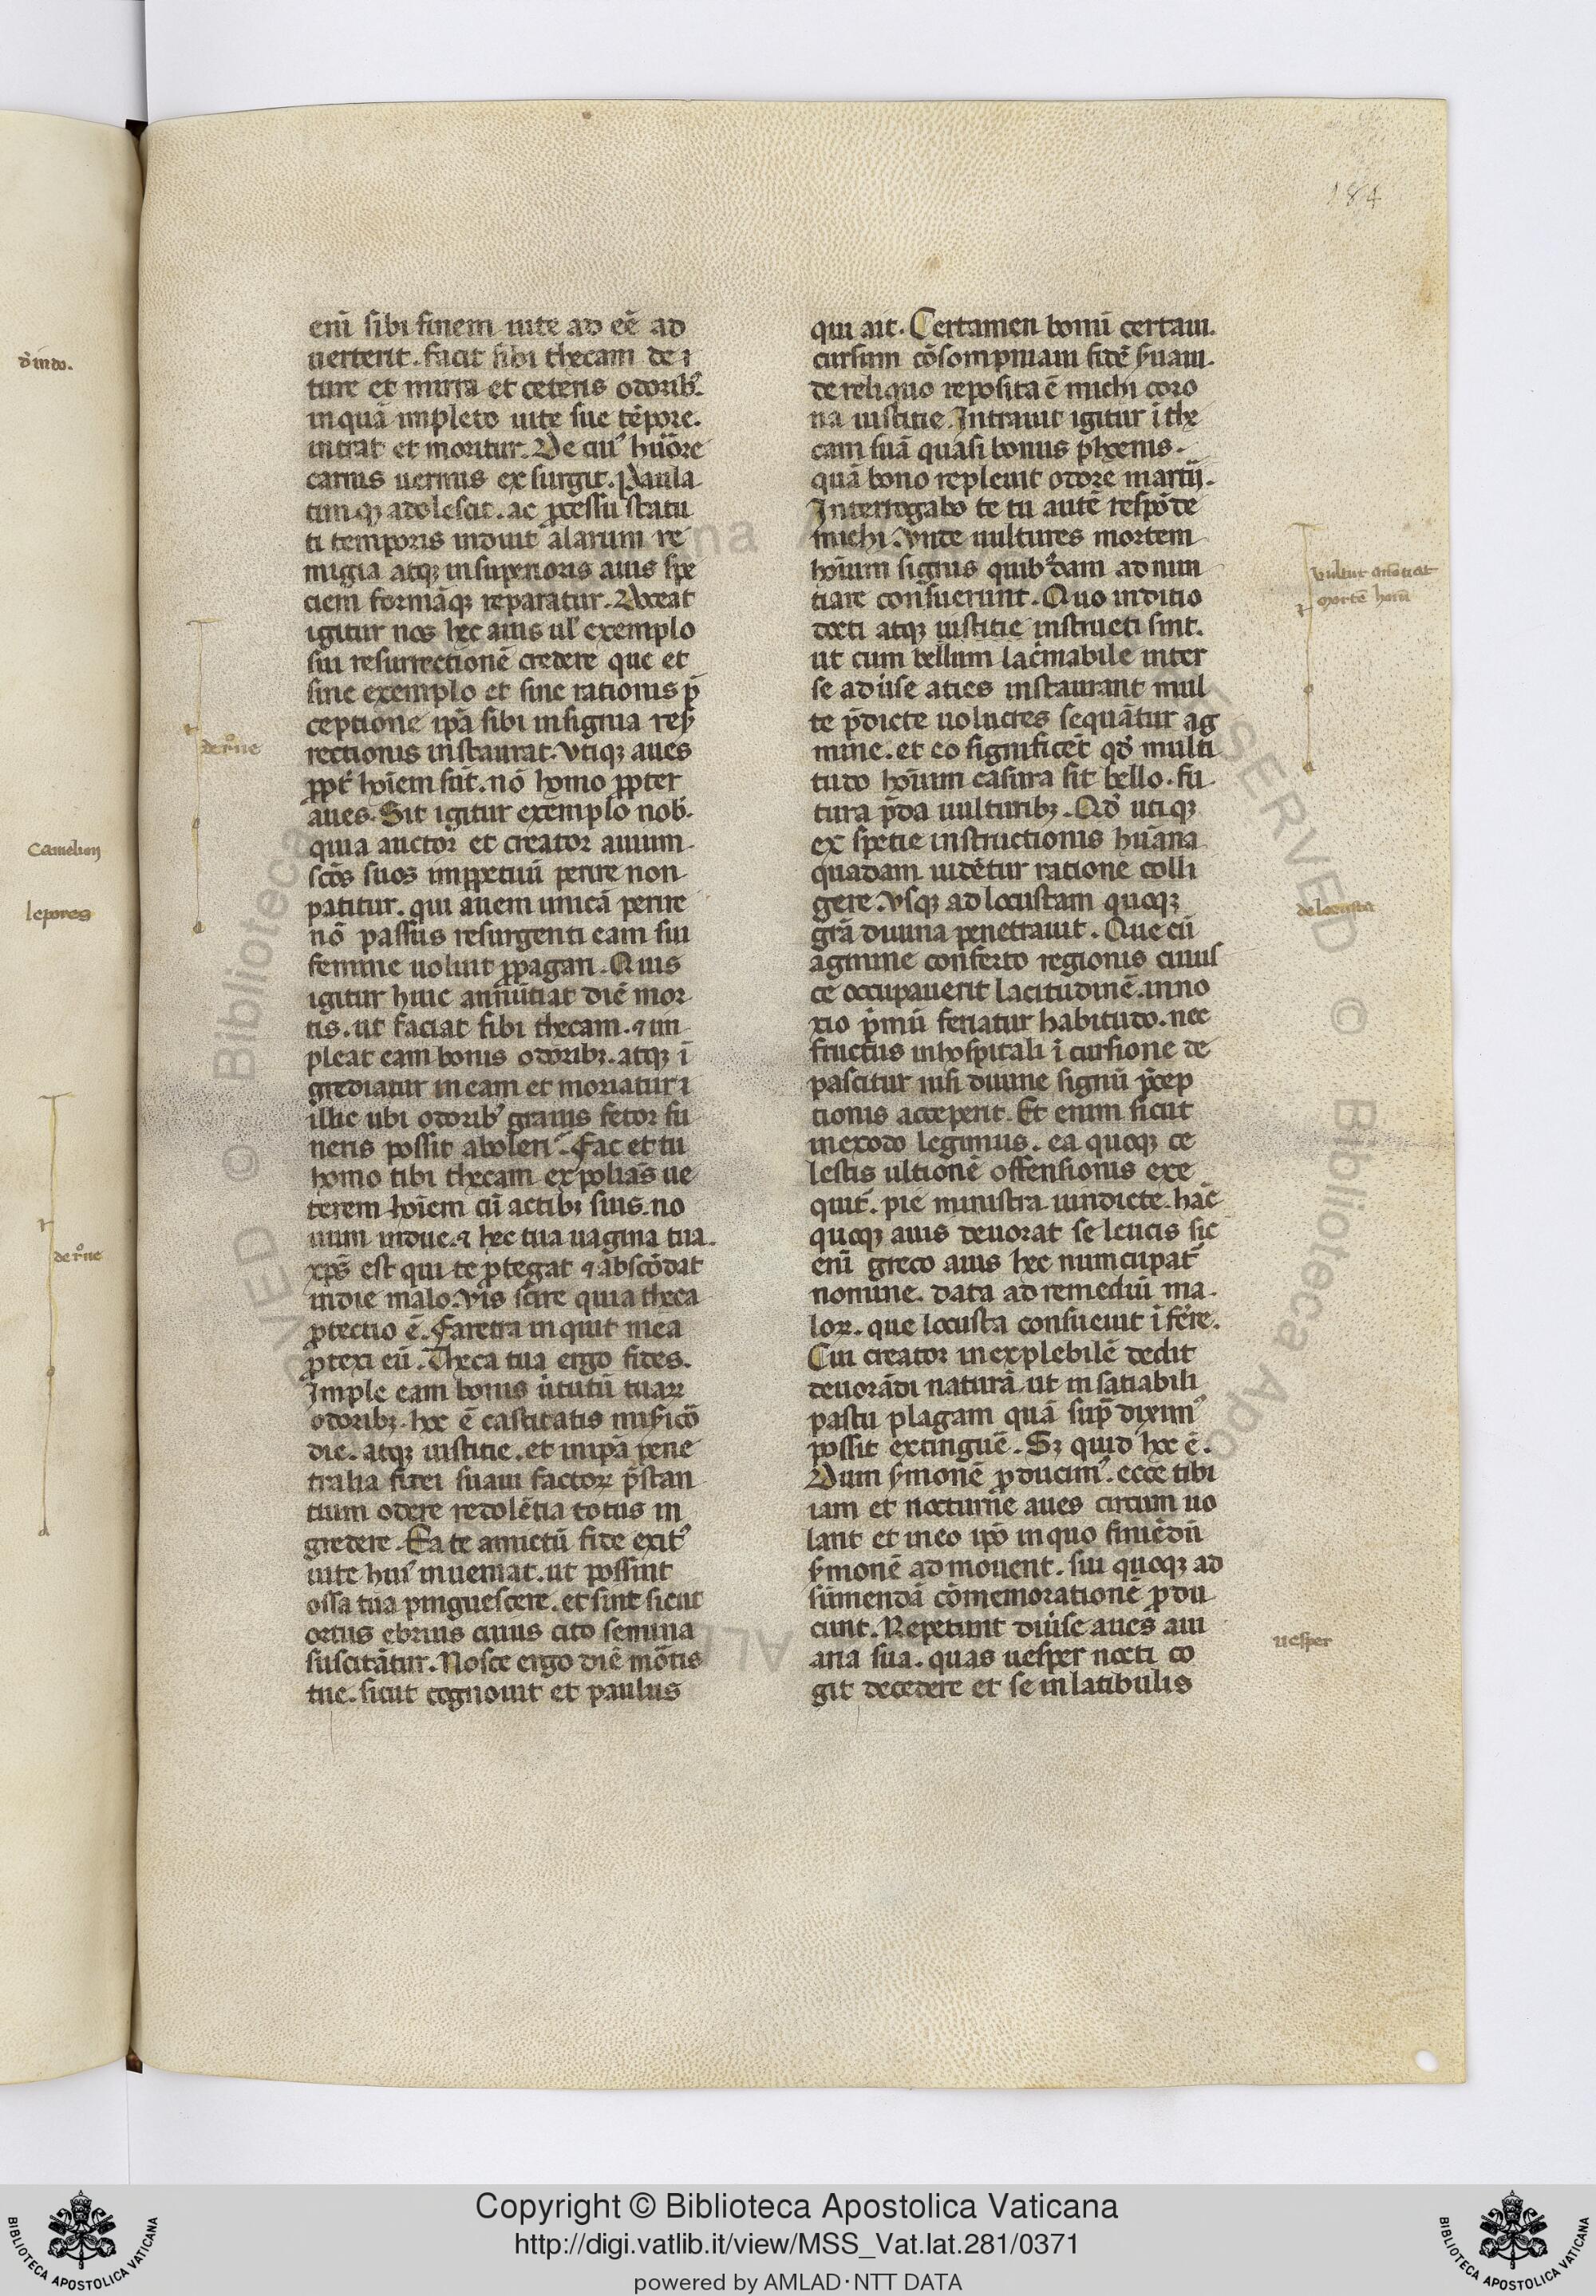 184
enī sibi finem uite ad eē ad
uerterit. facit sibi thecam de ı
ture et mirra et ceteris odorib⁹.
in quā impleto uite sue tēpore.
intrat et moritur. De cui⁹ huōre
carnis uermis exsurgit. Paula
timqꝫ adolescit. ac ꝓcessu statu
ti temporis induit alarum re
migia atqꝫ in superioris auis spe
ciem formāqꝫ reparatur. Doceat
igitur nos hec auis ul' exemplo
sui resurrectionē credere que et
sine exemplo et sine rationis p̄
ceptione ip̄a sibi insignia resur
rectionis instaurat. Vtiqꝫ aues
ꝓpt̄ hoīem sūt. nō homo ꝓpter
aues. Sit igitur exemplo nob̄.
quia auctor et creator auium
sc̄os suos imꝑpetuū perire non
patitur. qui auem unicā perire
nō passus resurgenti eam sui
femine uoluit ꝓpagari. Quis
igitur huic annūtiat diē mor
tis. ut faciat sibi thecam. ⁊ im
pleat eam bonis odoribꝫ. atqꝫ ī
grediatur in eam et moriatur ı
illic ubi odorib⁹ grauis fetor fu
neris possit aboleri. Fac et tu
homo tibi thecam expolians ue
terem hoīem cū actibꝫ suis. no
uum indue. ⁊ hec tua uagina tua.
xp̄s est qui te ꝓtegat ⁊ abscōdat
in die malo. Vis scire quia theca
ꝓtectio ē. Faretra inquit mea
ꝓtexi eū. Theca tua ergo fides.
Imple eam bonis ūtutū tuaꝝ
odoribꝫ. hoc ē castitatis misicō
die. atqꝫ iustitie. et in ip̄a pene
tralia fidei suaui factoꝝ p̄stan
tium odere redolētia totus in
gredere. Ea te amictū fide exit⁹
uite hui⁹ inueniat. ut possint
ossa tua pinguescere. et sint sicut
ortus ebrius cuius cito semina
suscitātur. Nosce ergo diē mōtis
tue. sicut cognouit et paulus
qui ait. Certamen bonū certaui.
cursum cōsompmaui fidē s̄uaui.
de reliquo reposita ē michi coro
na iustitie. Intrauit igitur ī the
cam suā quasi bonus phoenis.
quā bono repleuit odore martīj.
Interrogabo te tu autē respōde
michi. Vnde uultures mortem
hoīum signis quibꝰdam adnun
tiare consuerunt. Quo inditio
docti atqꝫ iustitie instructi sint.
ut cum bellum lac̄mabile inter
se aduīse aties instaurant mul
te p̄dicte uolucres sequātur ag
mine. et eo significēt qd̄ multi
tudo hoīum casura sit bello. fu
tura p̄da uulturibꝫ. Qd̄ utiqꝫ
ex spetie instructionis hūana
quadam uidētur ratione colli
gere. Vsqꝫ ad locustam quoqꝫ
grā diuina penetrauit. Que cū
agmine conferto regionis cuius
ce occupauerit lacitudinē. inno
xio p̄mū feriatur habitudo. nec
fructus inhospitali ī cursione de
pascitur nisi diuine signū p̄cep
tionis acceperit. Et enim sicut
in exodo legimus. ea quoqꝫ ce
lestis ultionē offensionis exe
quit̄. pie ministra uindicte. hāc
quoqꝫ auis deuorat seleucis sic
enī greco auis hec nuncupat̄
nomine. data ad remediū ma
loꝝ. que locusta consueuit īfēre.
Cui creator inexplebilē dedit
deuorādi naturā. ut insatiabili
pastu plagam quā sup̄ diximꝰ
possit extinguē. Sꝫ quid hoc ē.
Dum s̄monē ꝓducimꝰ. ecce tibi
iam et nocturne aues circum uo
lant et in eo ip̄o in quo finiēdū
s̄monē admouent. sui quoqꝫ ad
sūmendā cōmemorationē ꝓdu
cunt. Repetunt diūse aues aui
aria sua. quas uesper nocti co
git decedere et se in latibulis
de r̄one
uultur anūtiat
mortē hoīū
de locusta
uesper
d' indo.
Camelion
lepores
de r̄one
Copyright © Biblioteca Apostolica Vaticana
http://digi.vatlib.it/view/MSS_Vat.lat.281/0371
powered by AMLAD·NTT DATA
BIBLIOTECA APOSTOLICA VATICANA
BIBLIOTECA APOSTOLICA VATICANA